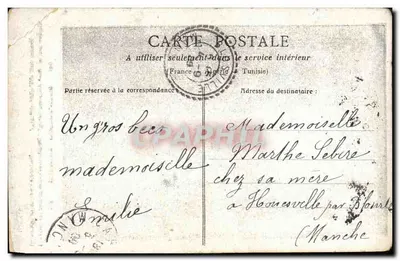 CARTE POSTALE
A utiliser seulement dans le service intérieur
(France Tunisie)
Partie réservée à la correspondance
Adresse du destinataire :
Un gros bec
mademoiselle
Emilie
Mademoiselle
Marthe Lebire
chez sa mère
à Houesville par
(Manche
CARTE POSTALE